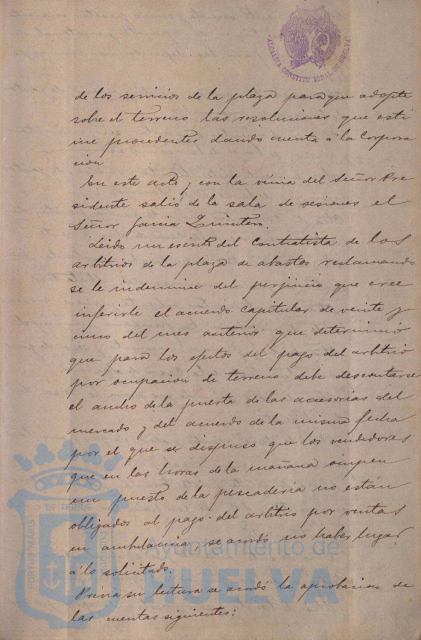 ALCALDIA CONSTITUCIONAL DE HUELVA
de los servicios de la plaza para que adopte
sobre el terreno las resoluciones que esti
me procedentes dando cuenta á la Corpora
cion
En este acto, con la venia del Señor Pre
sidente salió de la sala de sesiones el
Señor Garcia Quintero.
Leido un escrito del Contratista de los
arbitrios de la plaza de abastos reclamando
se le indemnice del perjuicio que cree
inferirle el acuerdo capitular de veinte y
cinco del mes anterior que determinó
que para los efectos del pago del arbitrio
por ocupacion de terreno debe descontarse
el ancho de la puerta de las accesorias del
mercado y del acuerdo de la misma fecha
por el que se dispuso que los vendedores
que en las horas de la mañana ocupen
un puesto de la pescaderia no están
obligados al pago del arbitrio por ventas
en ambulancia se acordó no haber lugar
á lo solicitado.
Previa su lectura se acordó la aprobacion de
las cuentas siguientes:
Ayuntamiento de
HUELVA